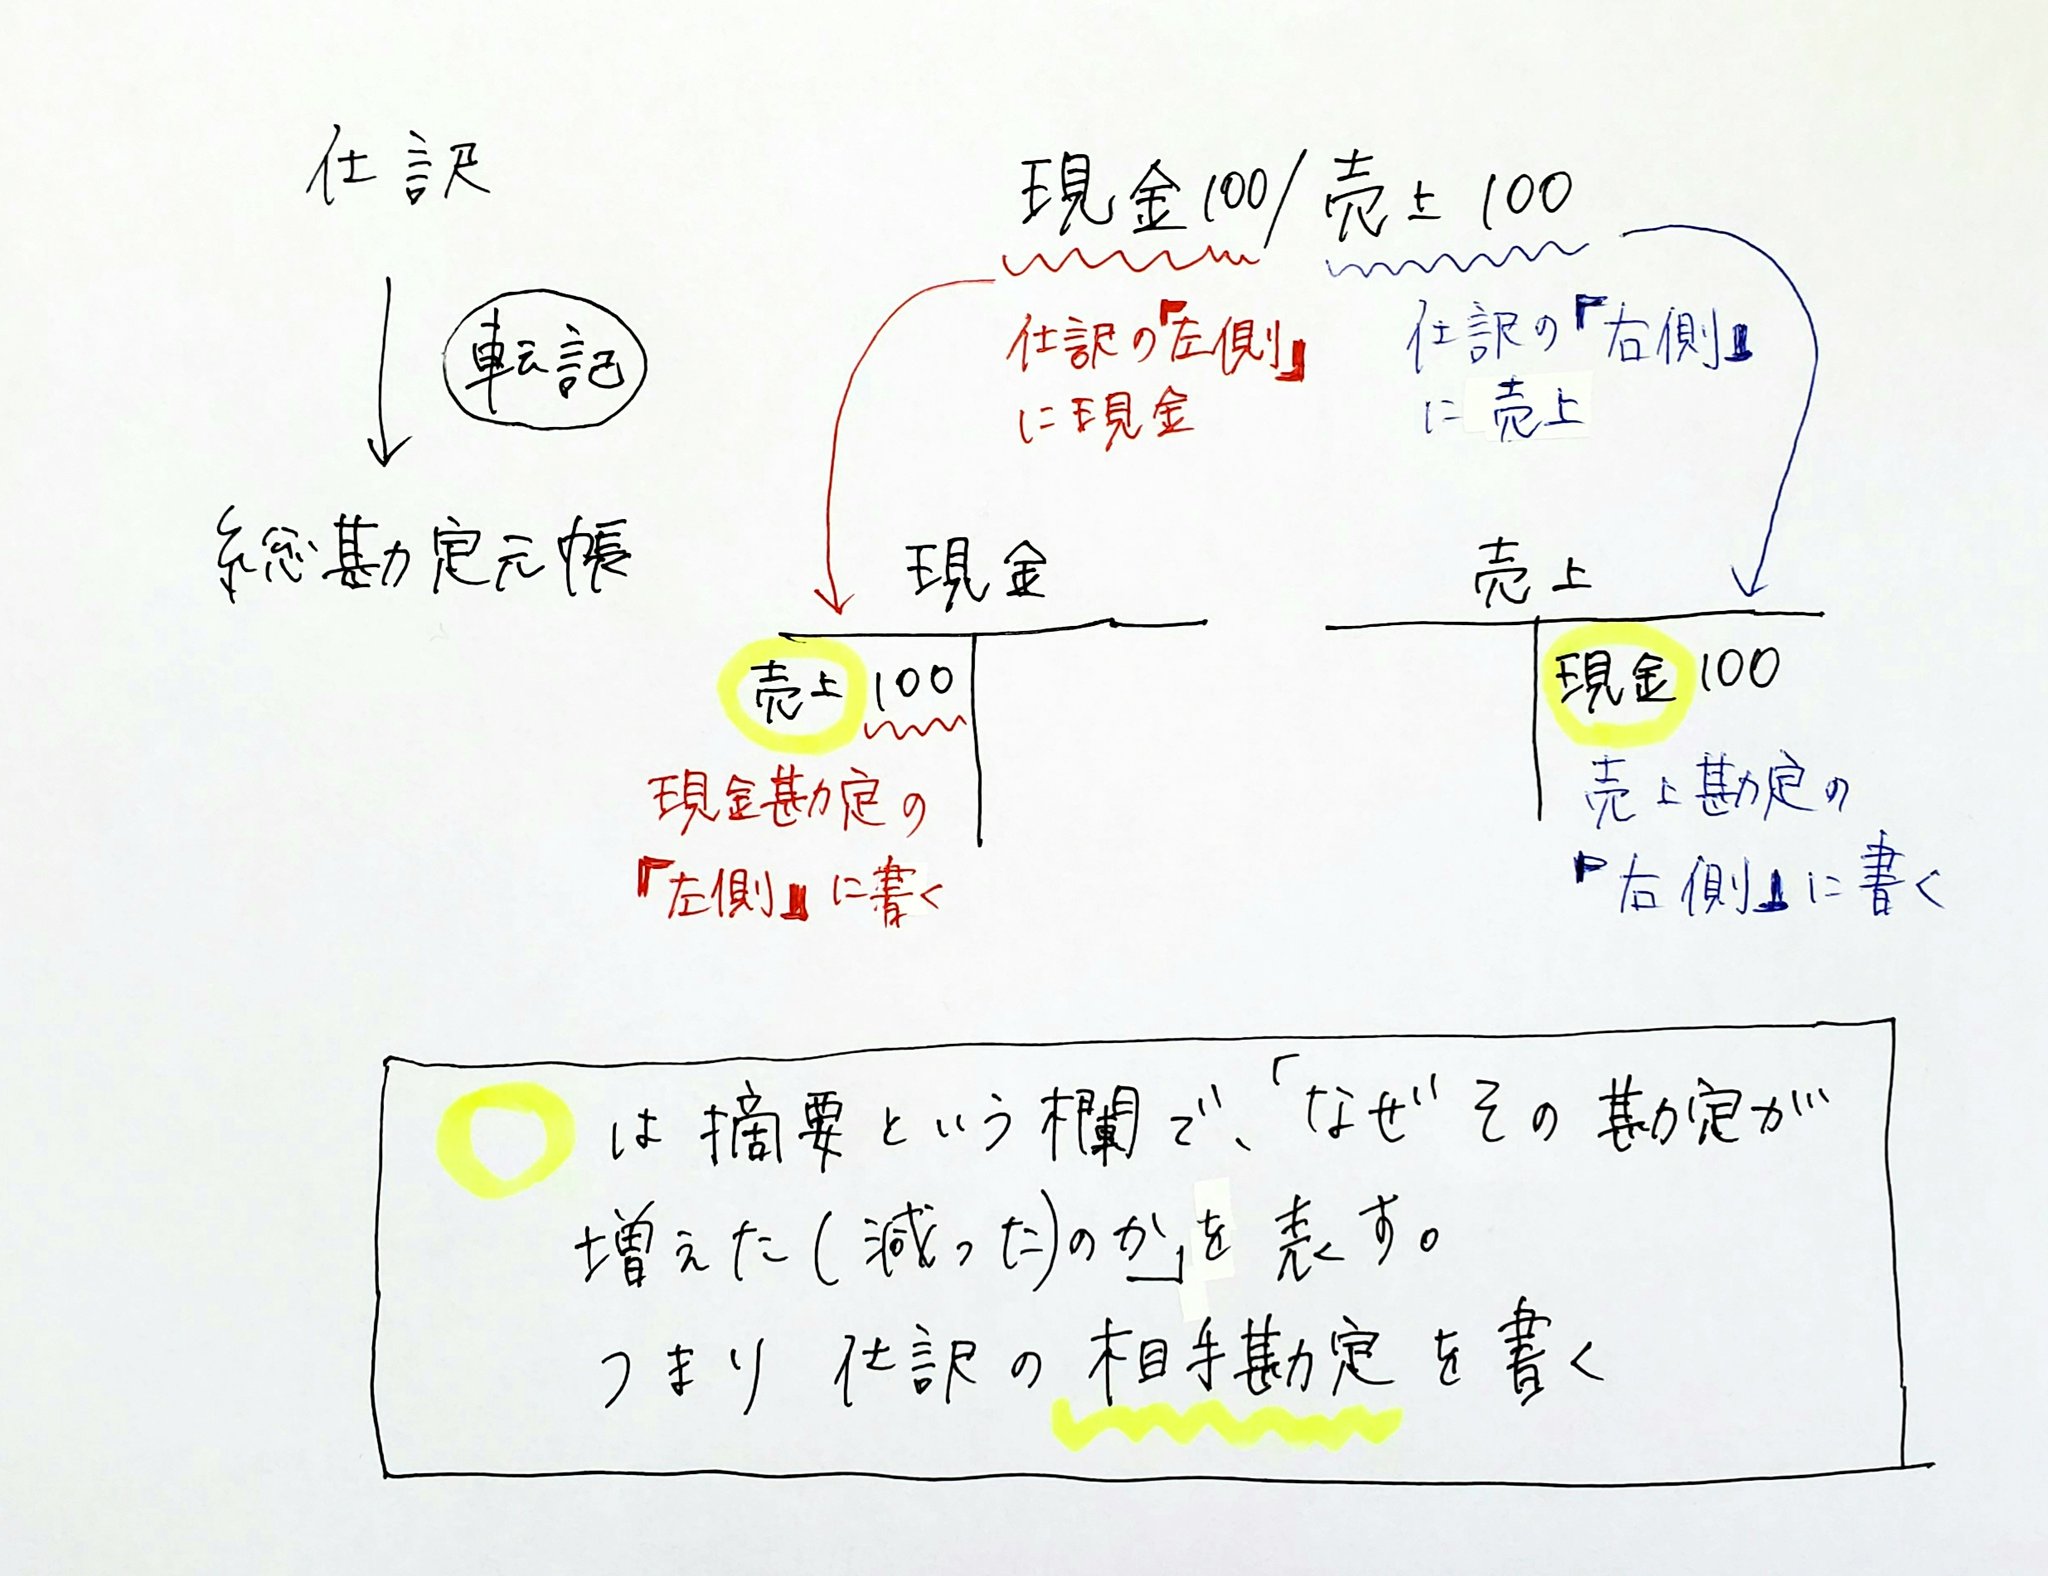 仕訳
転記
総勘定元帳
現金100/売上100
仕訳の『左側』
に現金
仕訳の『右側』
に売上
現金
売上100
現金勘定の
『左側』に書く
売上
現金100
売上勘定の
『右側』に書く
は摘要という欄で、「なぜその勘定が
増えた(減った)のか」を表す。
つまり仕訳の相手勘定を書く